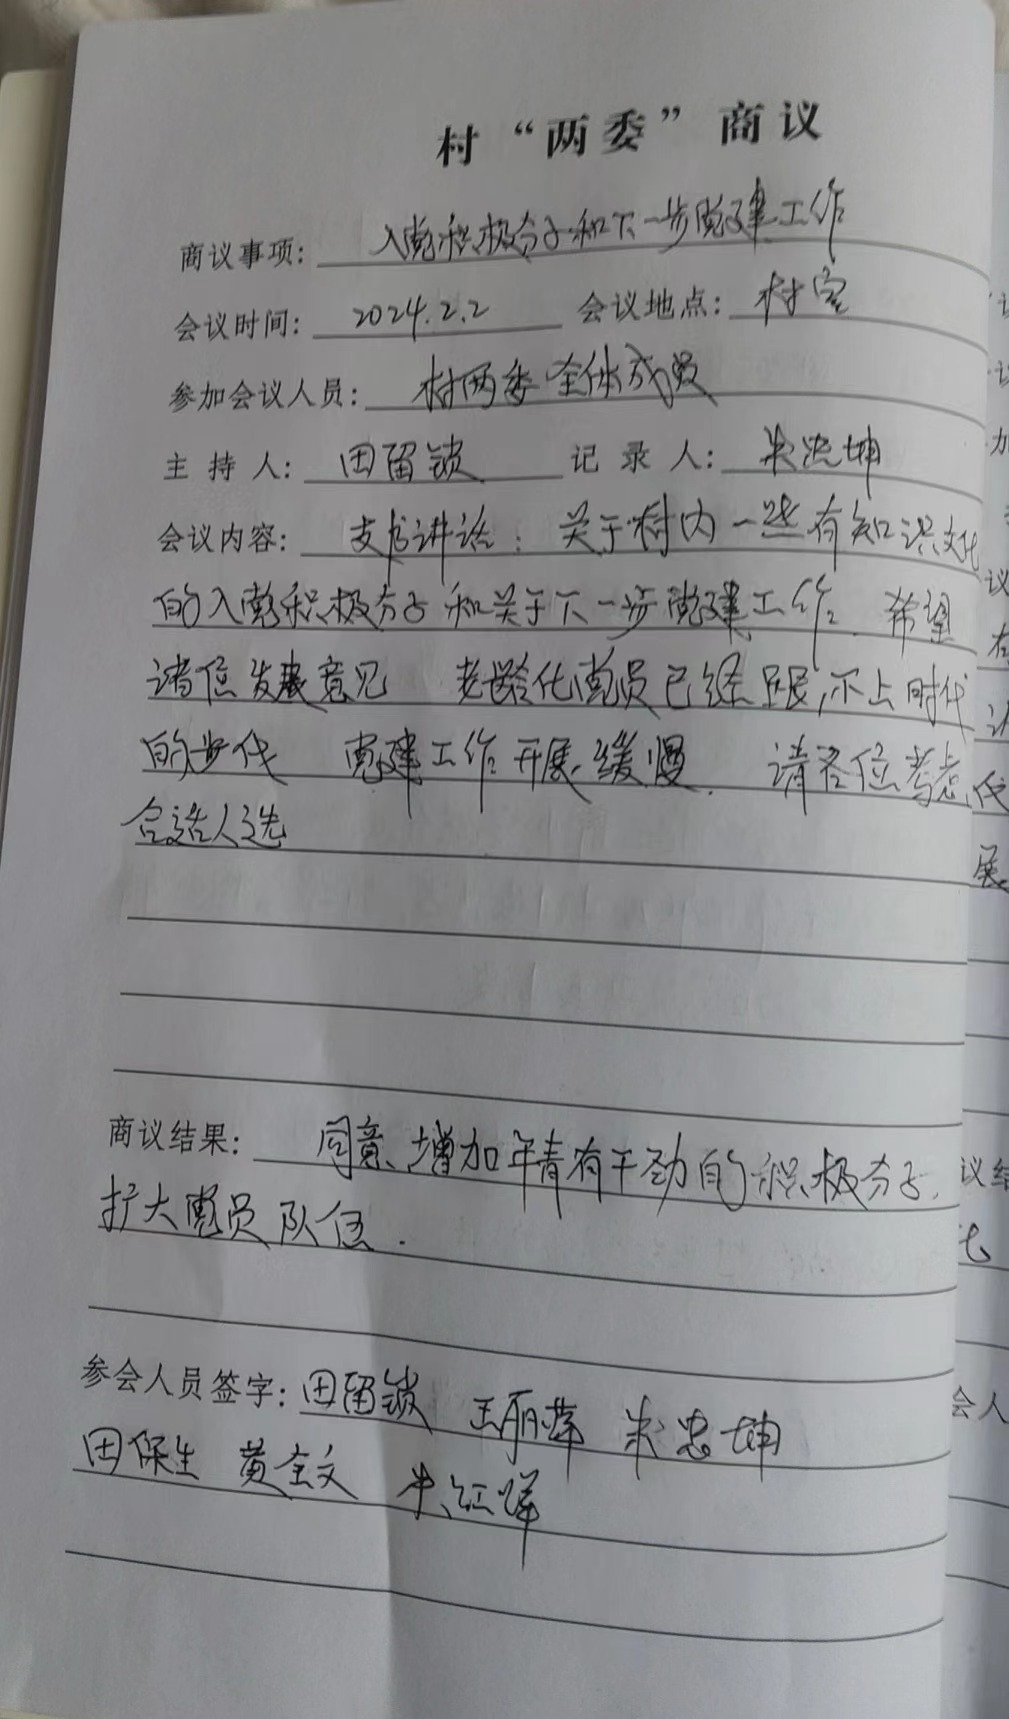 村“两委”商议
商议事项: 入党积极分子和下一步党建工作
会议时间: 2024.2.2 会议地点: 村室
参加会议人员: 村两委全体成员
主持人: 田留锁 记录人: 朱忠坤
会议内容: 支书讲话: 关于村内一些有知识文化
的入党积极分子和关于下一步党建工作. 希望
诸位发表意见 老龄化党员已经跟不上时代
的步伐 党建工作开展缓慢. 请各位考虑
合适人选
商议结果: 同意增加年青有干劲的积极分子,
扩大党员队伍.
参会人员签字: 田留锁 王丽萍 朱忠坤
田保生 黄全文 朱红